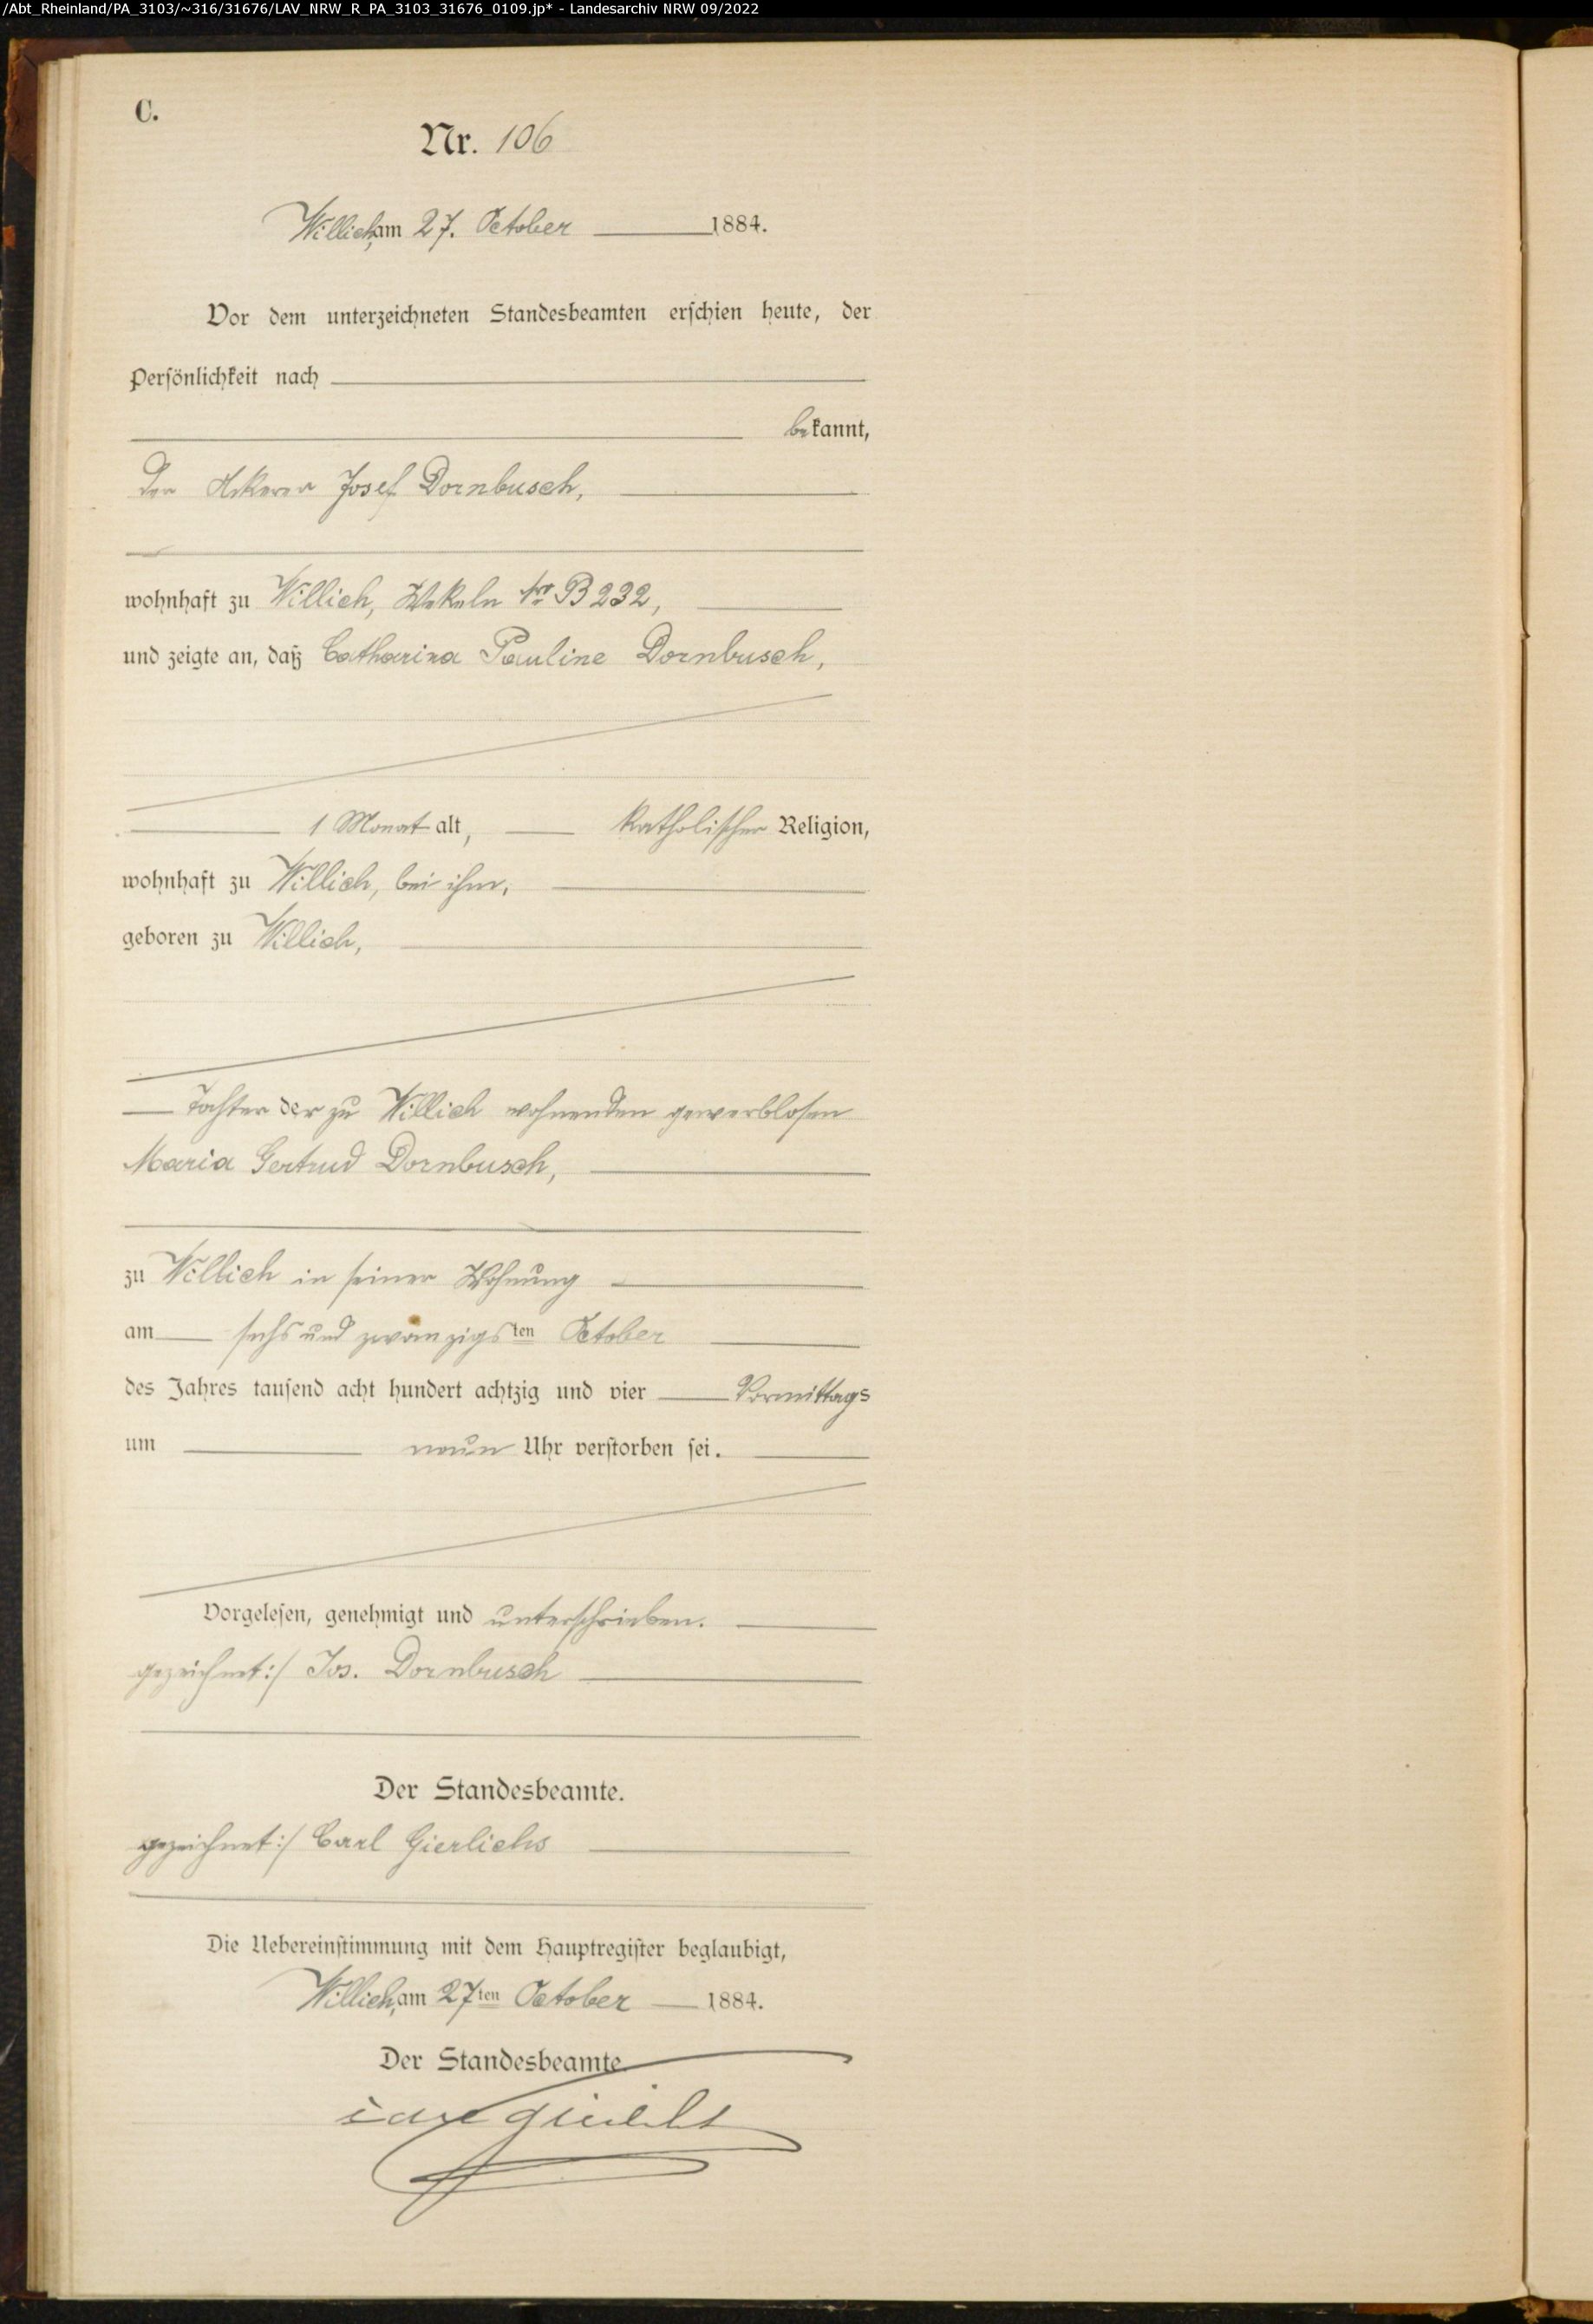 /Abt_Rheinland/PA_3103/~316/31676/LAV_NRW_R_PA_3103_31676_0109.jp* - Landesarchiv NRW 09/2022
C.
Nr. 106
Willich, am 27. October 1884.
Vor dem unterzeichneten Standesbeamten erschien heute, der
Persönlichkeit nach
bekannt,
der Ackerer Josef Dornbusch,
wohnhaft zu Willich, Wekeln No B 232,
und zeigte an, daß Catharina Pauline Dornbusch,
1 Monat alt, katholischer Religion,
wohnhaft zu Willich, bei ihm,
geboren zu Willich,
Tochter der zu Willich wohnenden gewerblosen
Maria Gertrud Dornbusch,
zu Willich in seiner Wohnung
am sechs und zwanzigsten October
des Jahres tausend acht hundert achtzig und vier Vormittags
um neun Uhr verstorben sei.
Vorgelesen, genehmigt und unterschrieben.
gezeichnet:/ Jos. Dornbusch
Der Standesbeamte.
gezeichnet:/ Carl Gierlichs
Die Uebereinstimmung mit dem Hauptregister beglaubigt,
Willich, am 27ten October 1884.
Der Standesbeamte
Carl Gierlichs